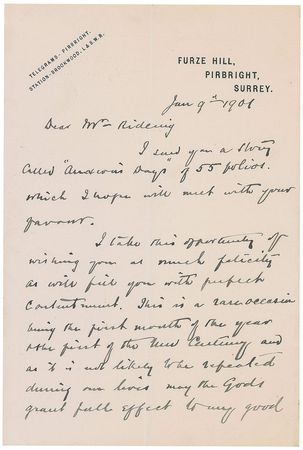 TELEGRAMS - PIRBRIGHT.
STATION - BROOKWOOD, L & S.W.R.
FURZE HILL,
PIRBRIGHT,
SURREY.
Jan 9th 1901
Dear Mr Rideing
I send you a story
called "Anxious Days" of 55 folios.
which I hope will meet with your
favour.
I take this opportunity of
wishing you as much felicity
as will fill you with perfect
Contentment. This is a rare occasion
being the first month of the year
& the first of the New Century and
as it is not likely to be repeated
during our lives may the Gods
grant full effect to my good